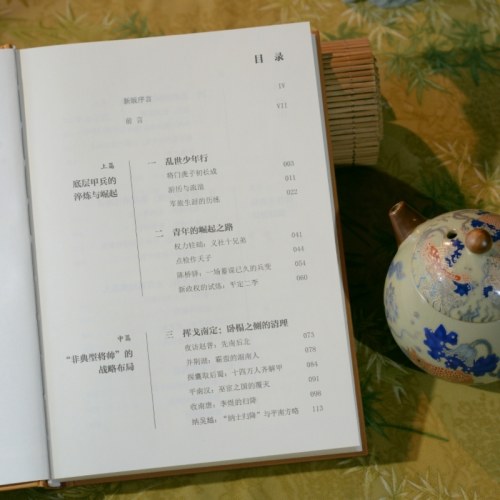 目 录
新版序言 IV
前言 VII
上篇
底层甲兵的
淬炼与崛起
一 乱世少年行
将门虎子初长成 003
新伤与流浪 011
军旅生涯的历练 022
二 青年的崛起之路
权力枢轴：义社十兄弟 041
点检作天子 044
陈桥驿：一场蓄谋已久的兵变 054
新政权的试炼：平定二李 060
中篇
“非典型将帅”的
战略布局
三 挥戈南定：卧榻之侧的清理
夜访赵普：先南后北 073
并荆湖：最宽的湖南人 078
探囊取后蜀：十四万人齐解甲 084
平南汉：巫宦之国的覆灭 091
收南唐：李煜的归降 098
纳吴越：“纳土归降”与平南方略 113